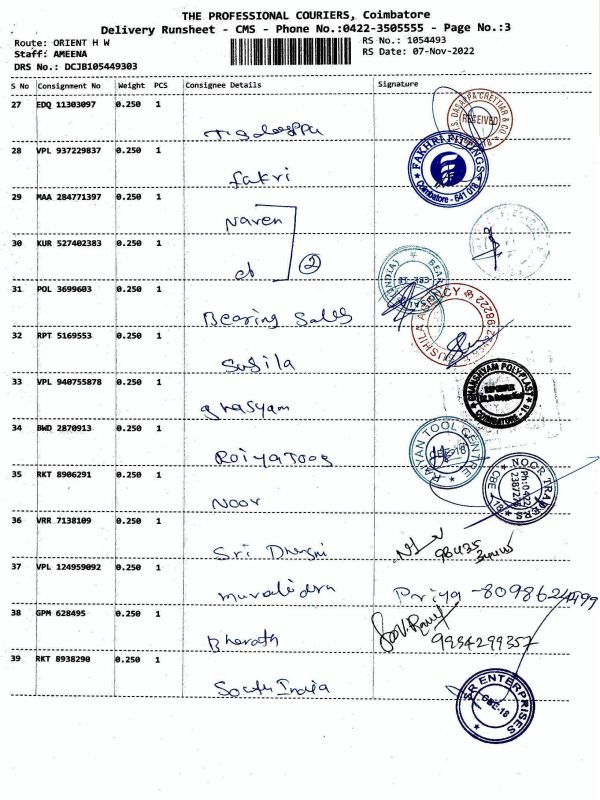 THE PROFESSIONAL COURIERS, Coimbatore
Delivery Runsheet - CMS - Phone No.:0422-3505555 - Page No.:3
Route: ORIENT H W
RS No.: 1054493
Staff: AMEENA
RS Date: 07-Nov-2022
DRS No.: DCJB105449303
S No Consignment No Weight PCS Consignee Details Signature
27 EDQ 11303097 0.250 1
S. DASAPPA CHETTIAR & CO
RECEIVED
28 VPL 937229837 0.250 1 fakri
FAKHRI FITTINGS
Coimbatore - 641 018
29 MAA 284771397 0.250 1 Naren
30 KUR 527402383 0.250 1 d 2
31 POL 3699603 0.250 1 Bearing Sales
32 RPT 5169553 0.250 1 Sugila
33 VPL 940755878 0.250 1 ghasyam
GHANSHYAM POLYPLAST
COIMBATORE - 18
34 BWD 2870913 0.250 1 Raiya Tools
RAIYAN TOOL CENTRE
CBE-18
35 RKT 8906291 0.250 1 Noor
NOOR TRADERS
CBE 18
Ph:0422
36 VRR 7138109 0.250 1 Sri
37 VPL 124959092 0.250 1 muralidra Priya -
38 GPM 628495 0.250 1 Bharath
9994299357
39 RKT 8938290 0.250 1 South India
SR ENTERPRISES
CBE-18